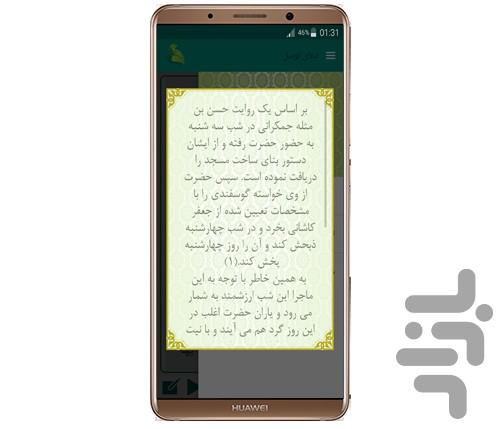 46% 01:31
دعای توسل
بر اساس یک روایت حسن بن
مثله جمکرانی در شب سه شنبه
به حضور حضرت رفته و از ایشان
دستور بنای ساخت مسجد را
دریافت نموده است. سپس حضرت
از وی خواسته گوسفندی را با
مشخصات تعیین شده از جعفر
کاشانی بخرد و در شب چهارشنبه
ذبحش کند و آن را روز چهارشنبه
پخش کند.(۱)
به همین خاطر با توجه به این
ماجرا این شب ارزشمند به شمار
می رود و یاران حضرت اغلب در
این روز گرد هم می آیند و با نیت
HUAWEI
بازار